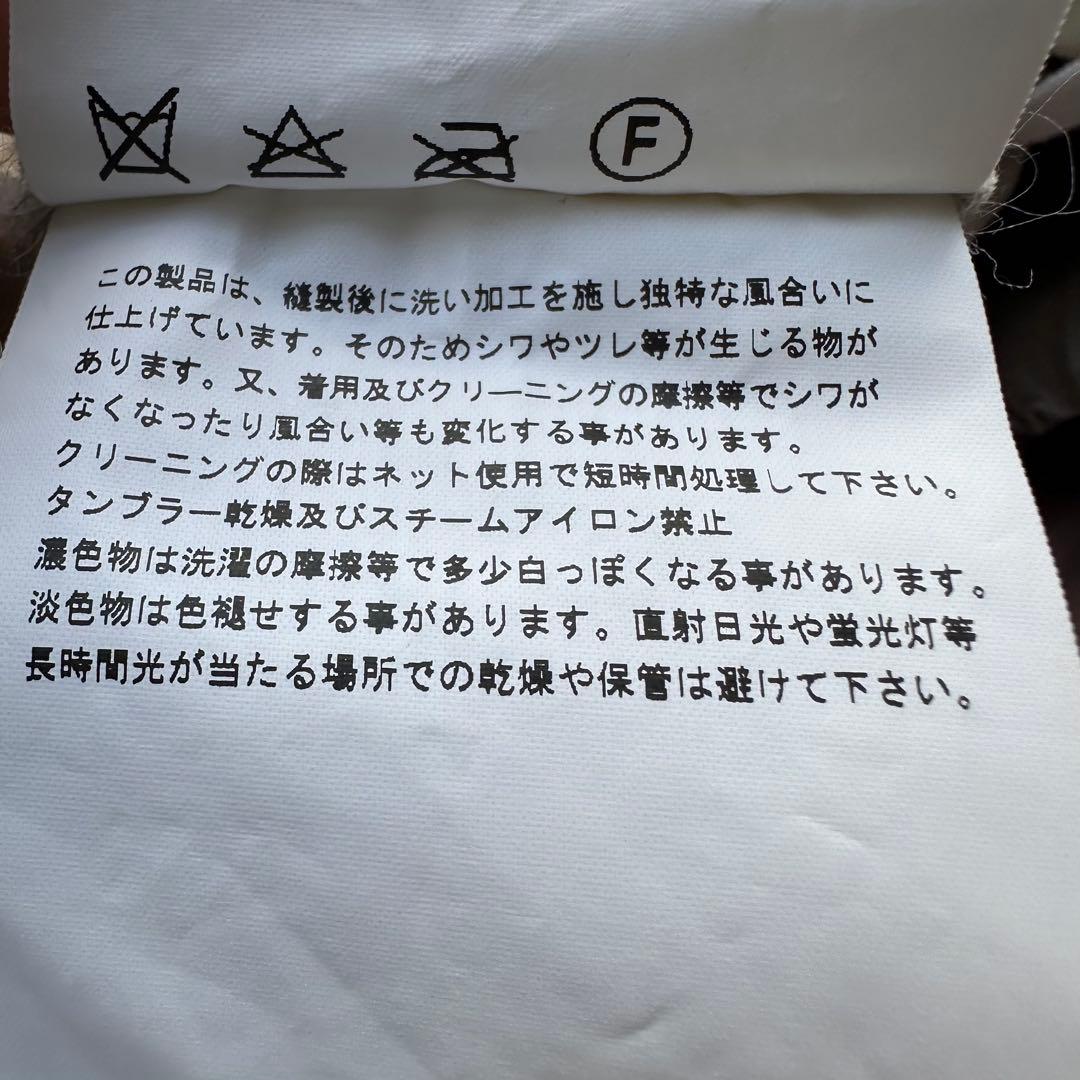 F
この製品は、縫製後に洗い加工を施し独特な風合いに
仕上げています。そのためシワやツレ等が生じる物が
あります。又、着用及びクリーニングの摩擦等でシワが
なくなったり風合い等も変化する事があります。
クリーニングの際はネット使用で短時間処理して下さい。
タンブラー乾燥及びスチームアイロン禁止
濃色物は洗濯の摩擦等で多少白っぽくなる事があります。
淡色物は色褪せする事があります。直射日光や蛍光灯等
長時間光が当たる場所での乾燥や保管は避けて下さい。